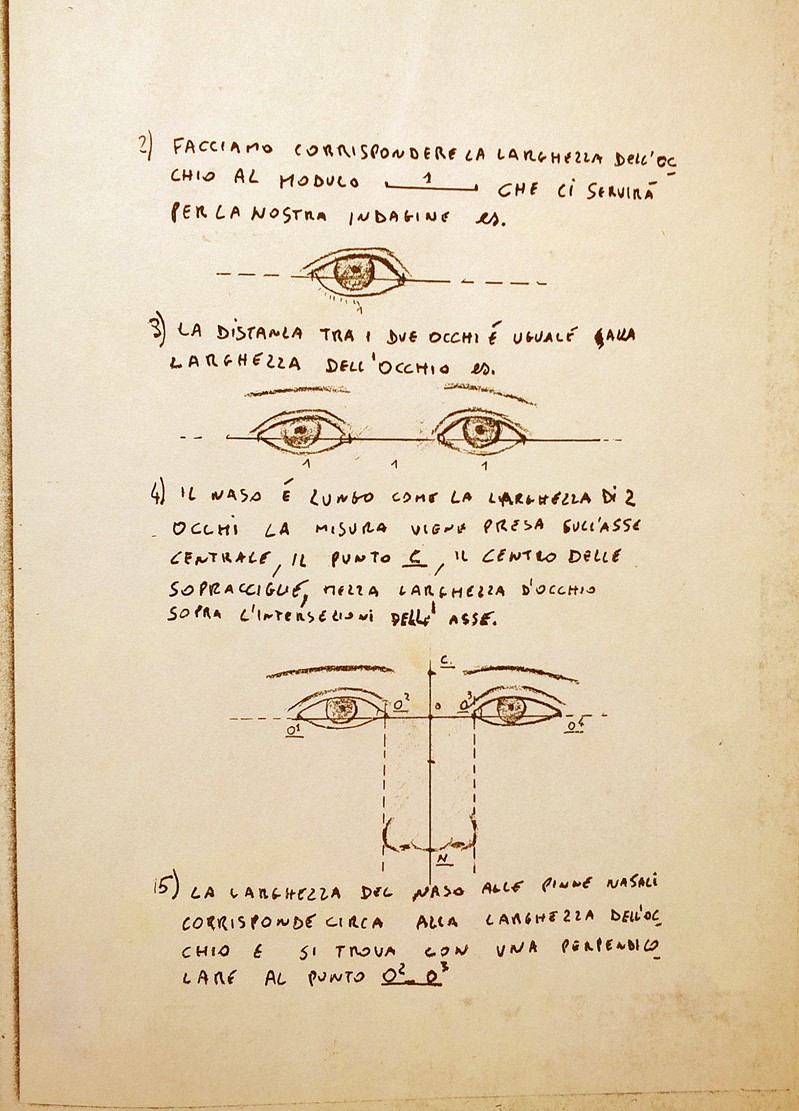 2) FACCIAMO CORRISPONDERE LA LARGHEZZA DELL'OC
CHIO AL MODULO 1 CHE CI SERVIRÀ
PER LA NOSTRA INDAGINE es.
1
3) LA DISTANZA TRA I DUE OCCHI É UGUALE ALLA
LARGHEZZA DELL'OCCHIO es.
1 1 1
4) IL NASO É LUNGO COME LA LARGHEZZA DI 2
OCCHI LA MISURA VIENE PRESA SULL'ASSE
CENTRALE, IL PUNTO C, IL CENTRO DELLE
SOPRACCIGLIE, MEZZA LARGHEZZA D'OCCHIO
SOPRA L'INTERSEZIONI DELL'ASSE.
C.
O² O O³
O¹ O⁴
N
5) LA LARGHEZZA DEL NASO ALLE PINNE NASALI
CORRISPONDE CIRCA ALLA LARGHEZZA DELL'OC
CHIO E SI TROVA CON UNA PERPENDICO
LARE AL PUNTO O² O³